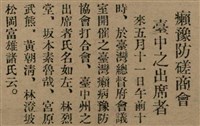 癩豫防磋商會
臺中之出席者
來五月十一日午前十
時、於臺灣總督府會議
室開催之臺灣癩病豫防
協會打合會、臺中州之
出席者氏名如左、林烈
堂、坂本素魯哉、宮原
武熊、黃朝清、林澄坡
松岡富雄諸氏云。